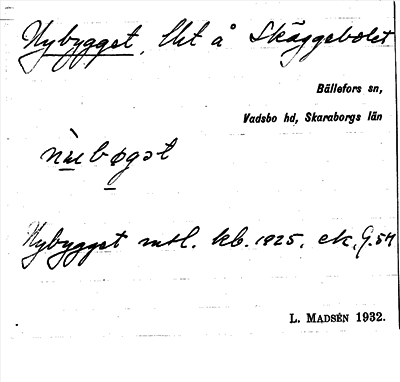 Nybygget, lht å Skäggebolet
Bällefors sn,
Vadsbo hd, Skaraborgs län
Nybygget mtl. kb. 1925. ek. G. 54
L. MADSÉN 1932.